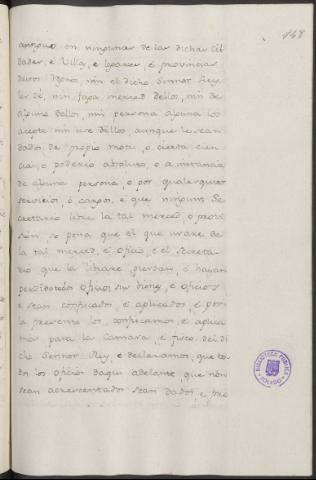 148
antiguo en ningunas de las dichas Cib
dades, e Villas, e logares, e provincias
destos Regnos, nin el dicho Sennor Rey
les dé, nin faga merced dellos, nin de
alguno dellos, nin persona alguna los
acepte nin use dellos, aunque le sean
dados de propio motu, o cierta cien
cia, o poderio absoluto, o a instancia
de alguna persona, o por qualesquier
servicios, o cargos, e que ningunt Se
cretario libre la tal merced, o provi
sión, so pena que el que usare de
la tal merced, e oficio, e el Secreta
rio que la librare pierdan, e hayan
perdido todos sus bienes, e oficios
e sean confiscados, e aplicados, e por
la presente los confiscamos, e aplica
mos para la Camara, e fisco del di
cho Sennor Rey, e declaramos, que to
dos los oficios daqui adelante, que non
sean acrescentados sean dados, e pro
BIBLIOTECA PUBLICA
TOLEDO